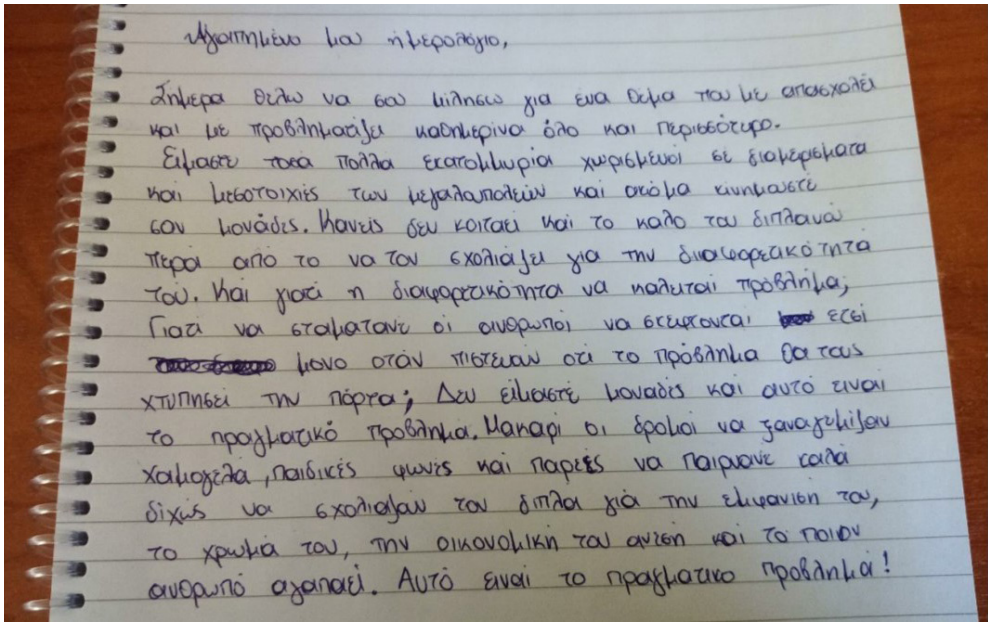 Αγαπημένο μου ημερολόγιο,
Σήμερα θέλω να σου μιλήσω για ένα θέμα που με απασχολεί
και με προβληματίζει καθημερινά όλο και περισσότερο.
Είμαστε τοσα πολλα εκατομμυρια χωρισμένοι σε διαμερίσματα
και μεσοτοιχίες των μεγαλουπόλεων και ακόμα κινημαστε
σαν μονάδες. Κανείς δεν κοιταει και το καλο του διπλανού
πέρα από το να τον σχολιάζει για την διαφορετικότητα
του. Και γιατί η διαφορετικότητα να καλειται πρόβλημα;
Γιατί να σταματανε οι ανθρωποι να σκεφτονται ετσι
μονο οταν πιστευαν οτι το πρόβλημα θα τους
χτυπησει την πόρτα; Δεν είμαστε μοναδες και αυτό ειναι
το πραγματικό πρόβλημα. Μακαρι οι δρομοι να ξαναγεμιζαν
χαμογελα, παιδικές φωνές και παρεες να παιρνανε καλα
διχως να σχολιαζαν τον διπλα για την εμφανιση του,
το χρωμα του, την οικονομικη του αντεση και το ποιον
ανθρωπο αγαπαει. Αυτό ειναι το πραγματικο προβλημα!